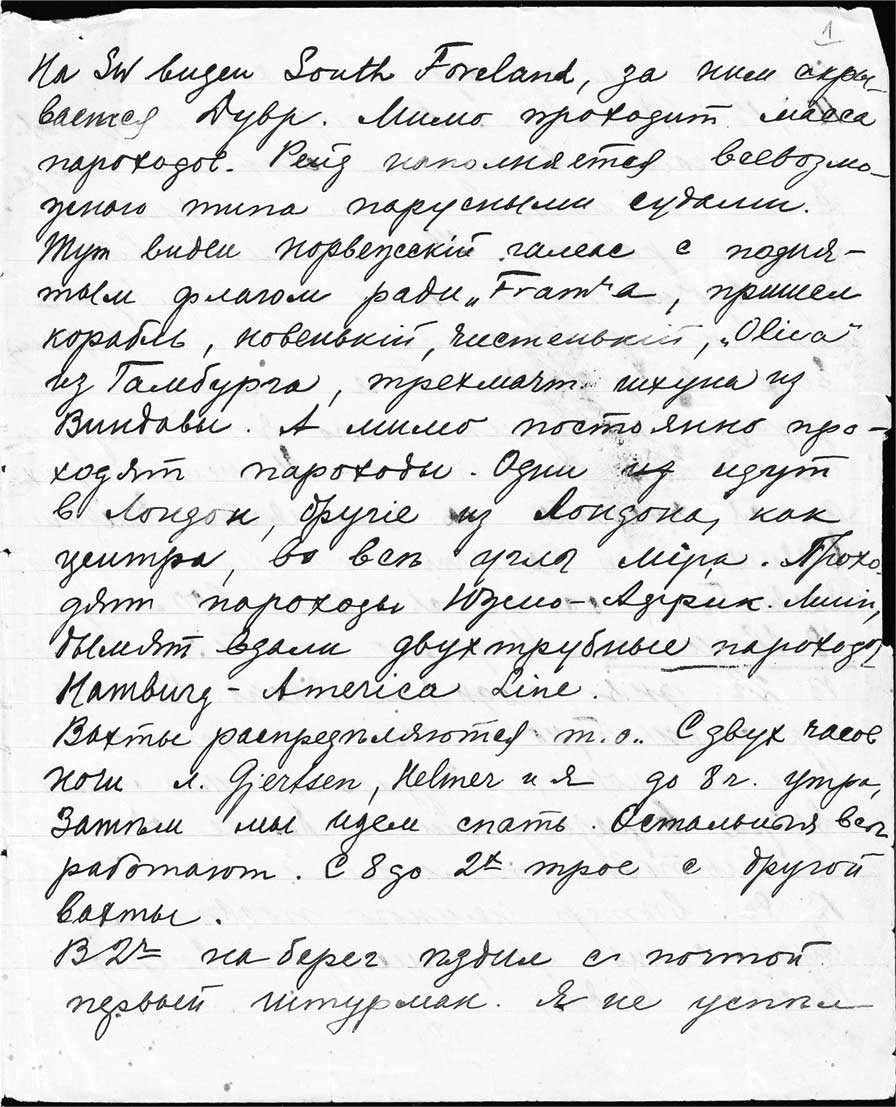 1
На SW виден South Foreland, за ним скры-
вается Дувр. Мимо проходит масса
пароходов. Рейд наполняется всевозмо-
жного типа парусными судами.
Тут виден норвежскій галеас с подня-
тым флагом ради „Fram“а, пришел
корабль, новенькій, чистенькій, „Oliva“
из Гамбурга, трехмачт. шхуна из
Виндавы. А мимо постоянно про-
ходят пароходы. Одни из идут
в Лондон, другіе из Лондона, как
центра, во всѣ углы міра. Прохо-
дят пароходы Южно-Африк. линіи,
дымят вдали двухтрубные пароходы
Hamburg-America Line.
Вахты распредѣляются т.о.. С двух часов
ночи л. Gjertsen, Helmer и я до 8 ч. утра,
Затѣм мы идем спать. Остальныя все
работают. С 8 до 2х трое с другой
вахты.
В 2ч на берег ѣздил с почтой
первый штурман. Я не успѣл